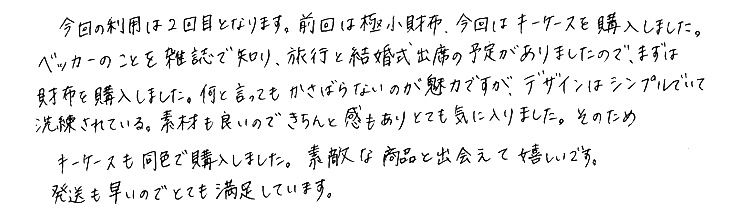 今回の利用は2回目となります。前回は極小財布、今回はキーケースを購入しました。
ベッカーのことを雑誌で知り、旅行と結婚式出席の予定がありましたので、まずは
財布を購入しました。何と言ってもかさばらないのが魅力ですが、デザインはシンプルでいて
洗練されている。素材も良いのできちんと感もありとても気に入りました。そのため
キーケースも同色で購入しました。素敵な商品と出会えて嬉しいです。
発送も早いのでとても満足しています。